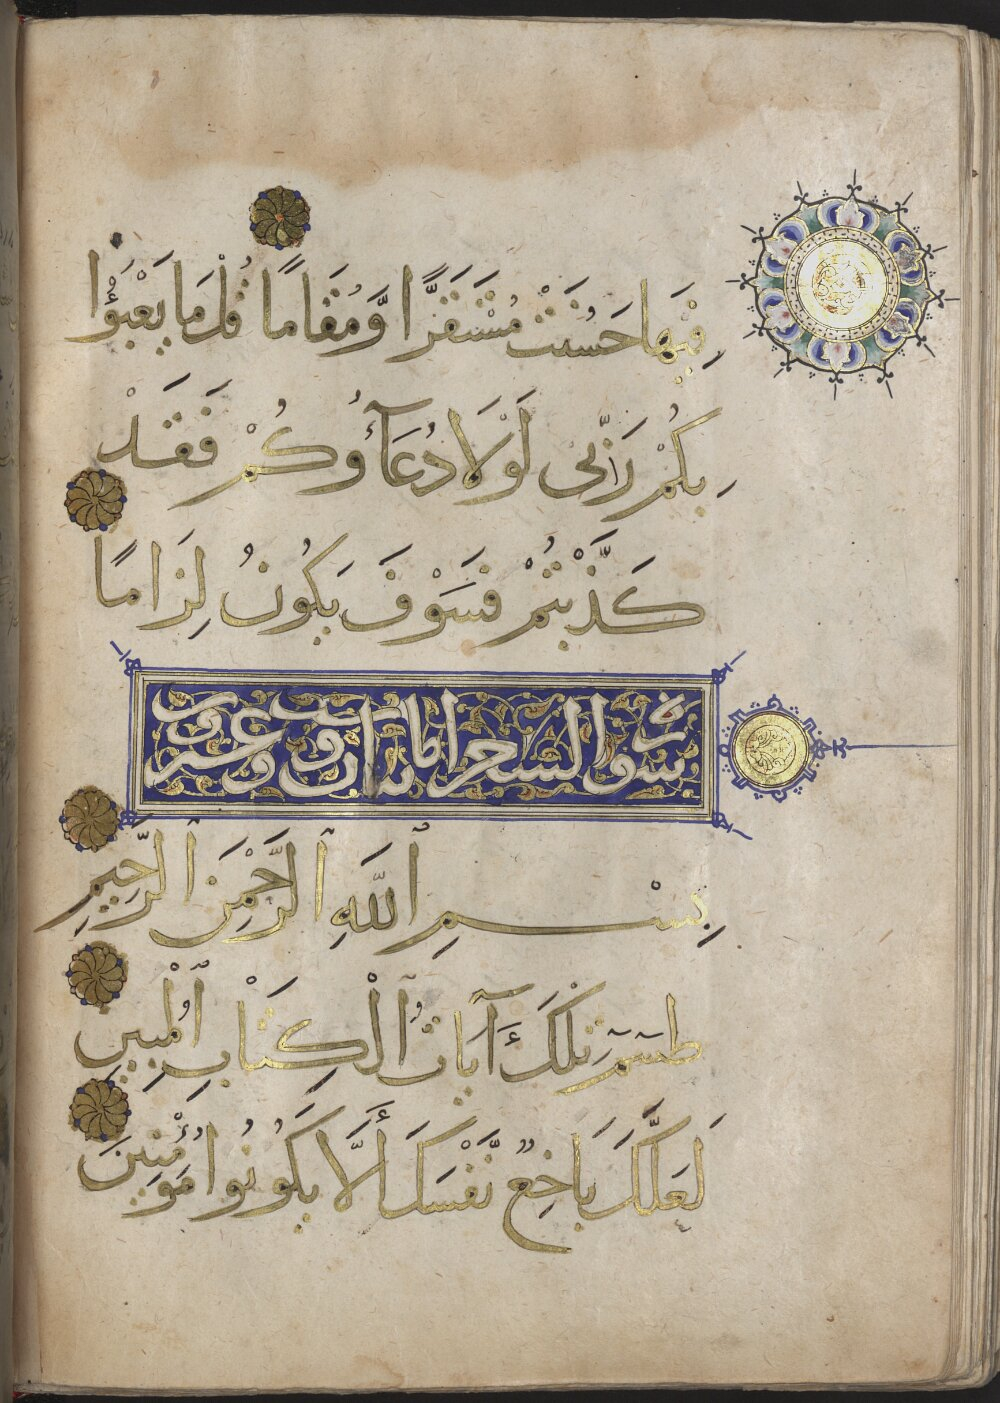 فِيهَا حَسُنَتْ مُسْتَقَرًّا وَّمُقَامًا قُلْ مَا يَعْبَؤُا
بِكُمْ رَبِّى لَوْلَا دُعَآؤُكُمْ فَقَدْ
كَذَّبْتُمْ فَسَوْفَ يَكُونُ لِزَامًا
سورة الشعرا وعشرون
بِسْمِ ٱللَّهِ ٱلرَّحْمَنِ ٱلرَّحِيمِ
طسٓمٓ تِلْكَ آيَاتُ ٱلْكِتَابِ ٱلْمُبِينِ
لَعَلَّكَ بَاخِعٌ نَّفْسَكَ أَلَّا يَكُونُوا مُؤْمِنِينَ